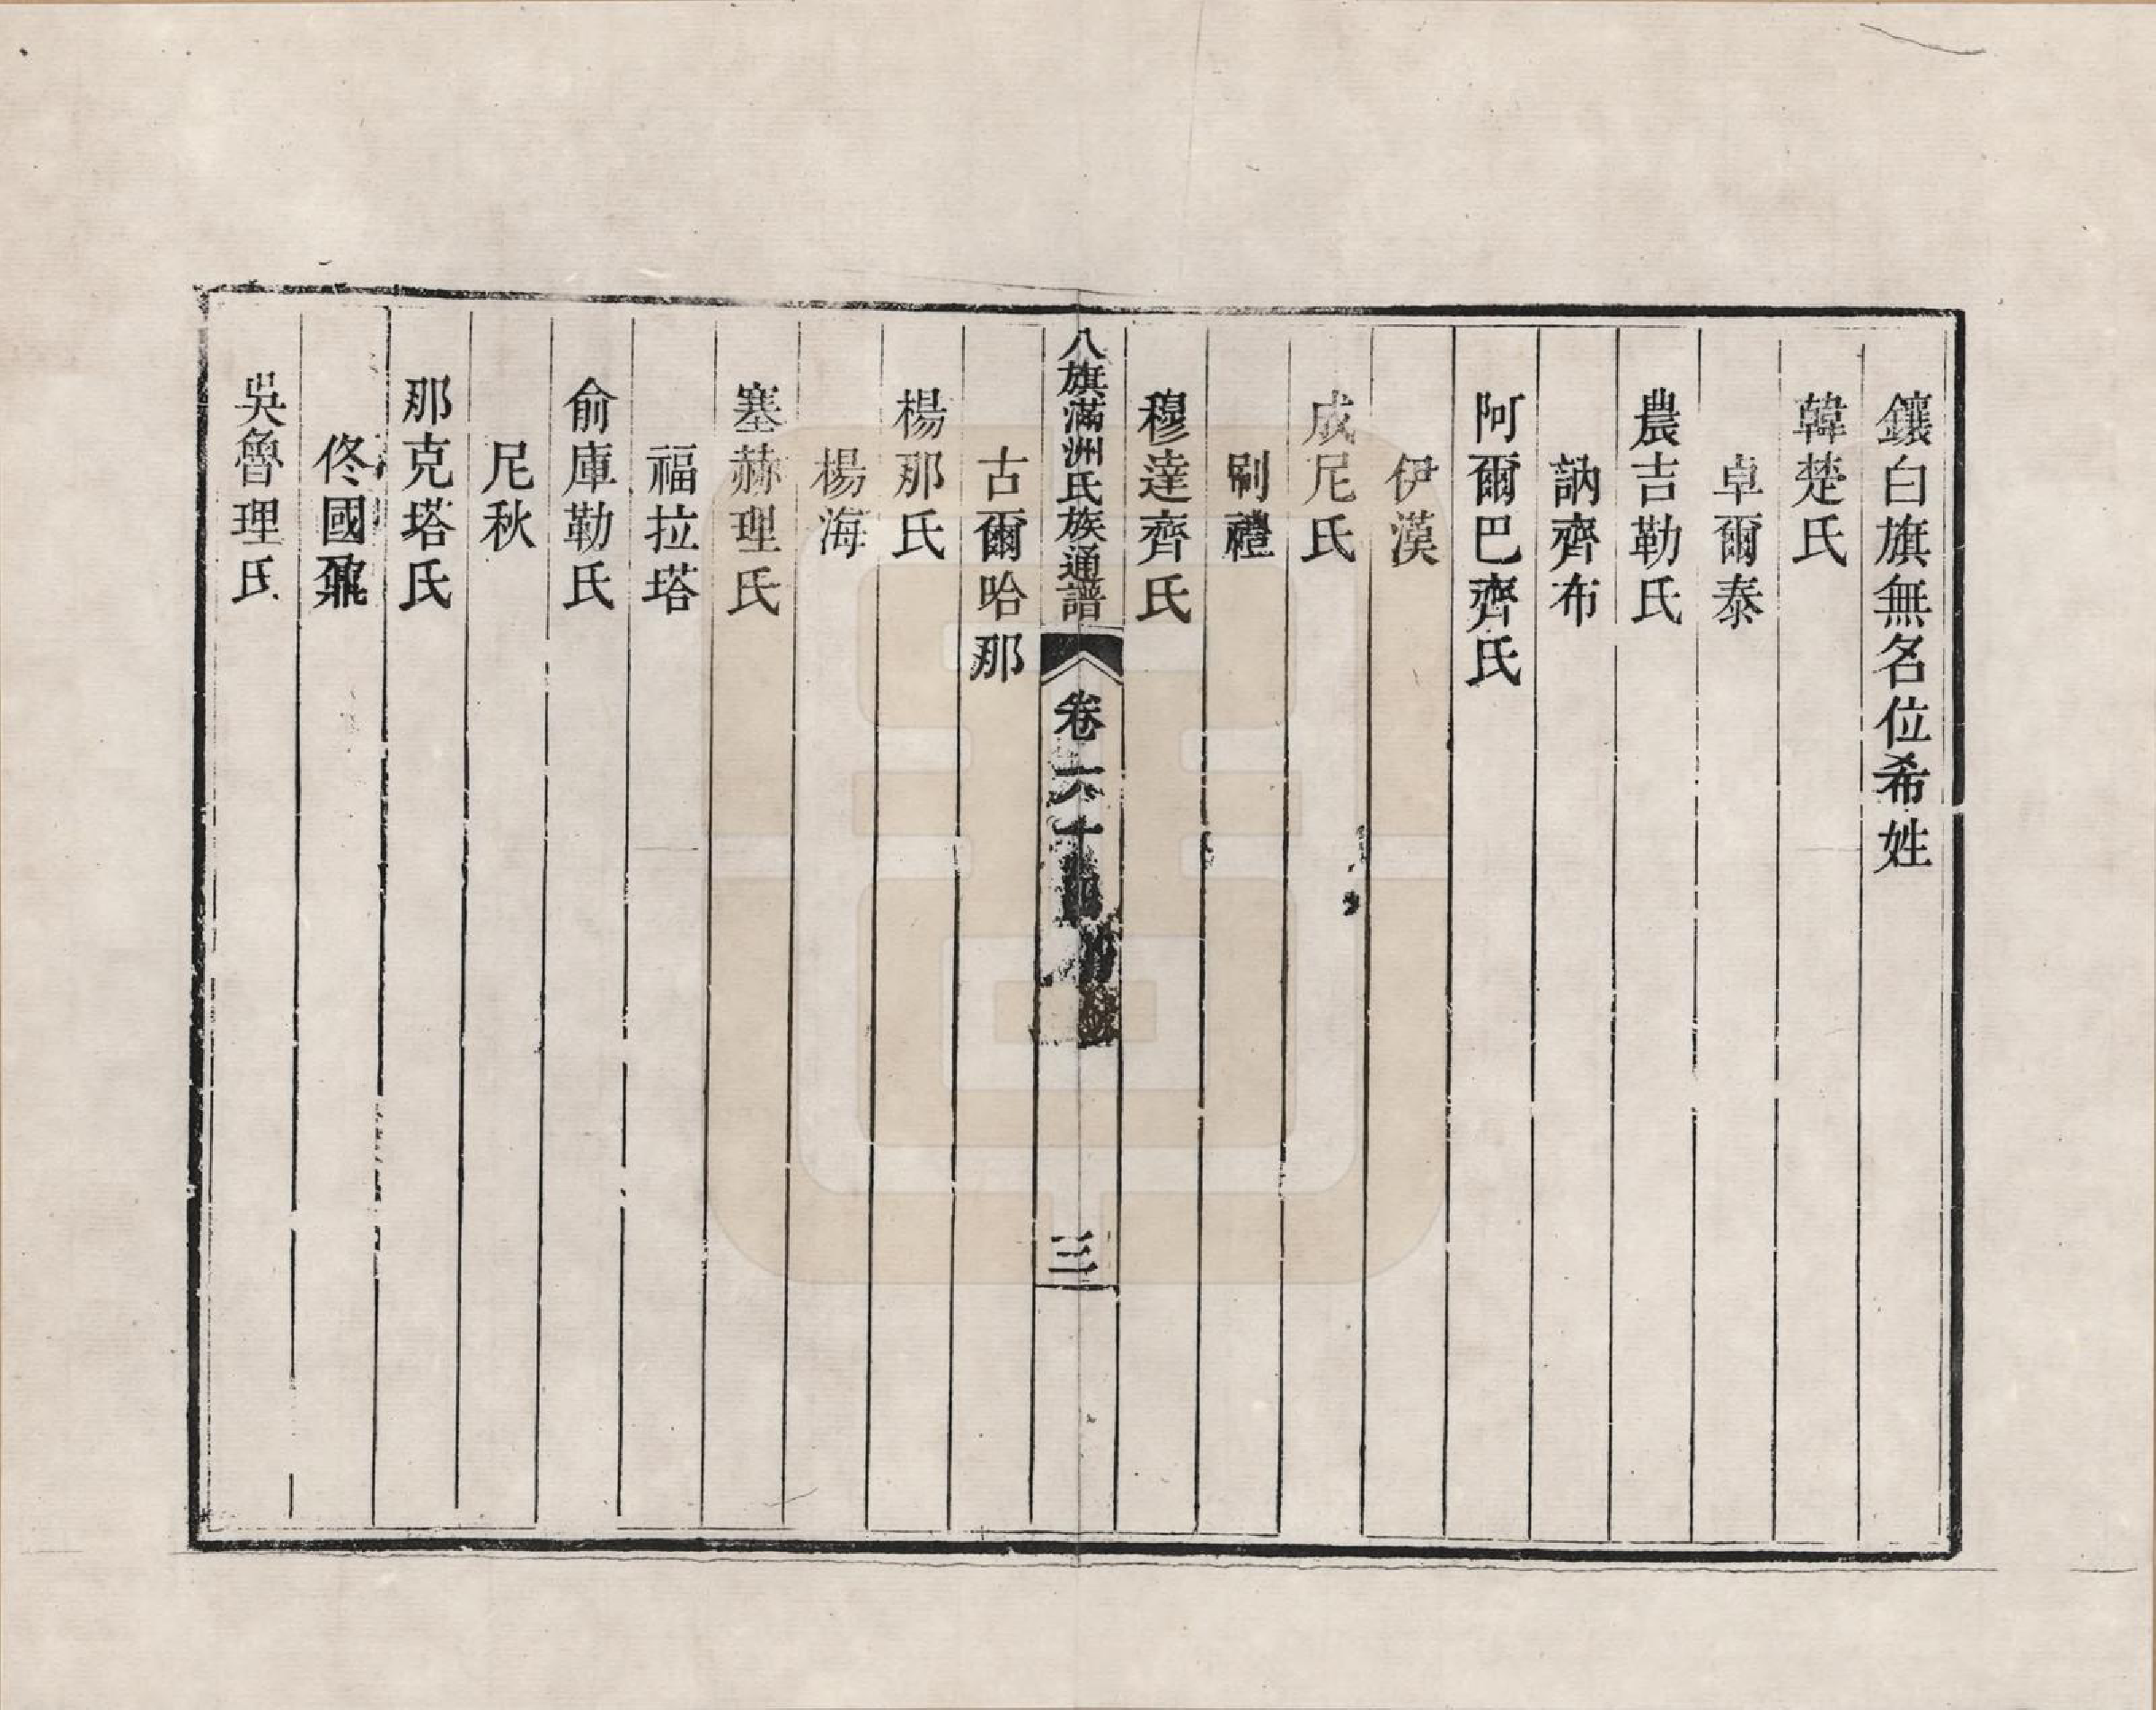 鑲白旗無名位希姓
韓楚氏
卓爾泰
農吉勒氏
訥齊布
阿爾巴齊氏
伊漢
成尼氏
刷禮
穆達齊氏
八旗滿洲氏族通譜 卷六十 三
古爾哈那
楊那氏
楊海
塞赫理氏
福拉塔
俞庫勒氏
尼秋
那克塔氏
佟國鼐
吳魯理氏